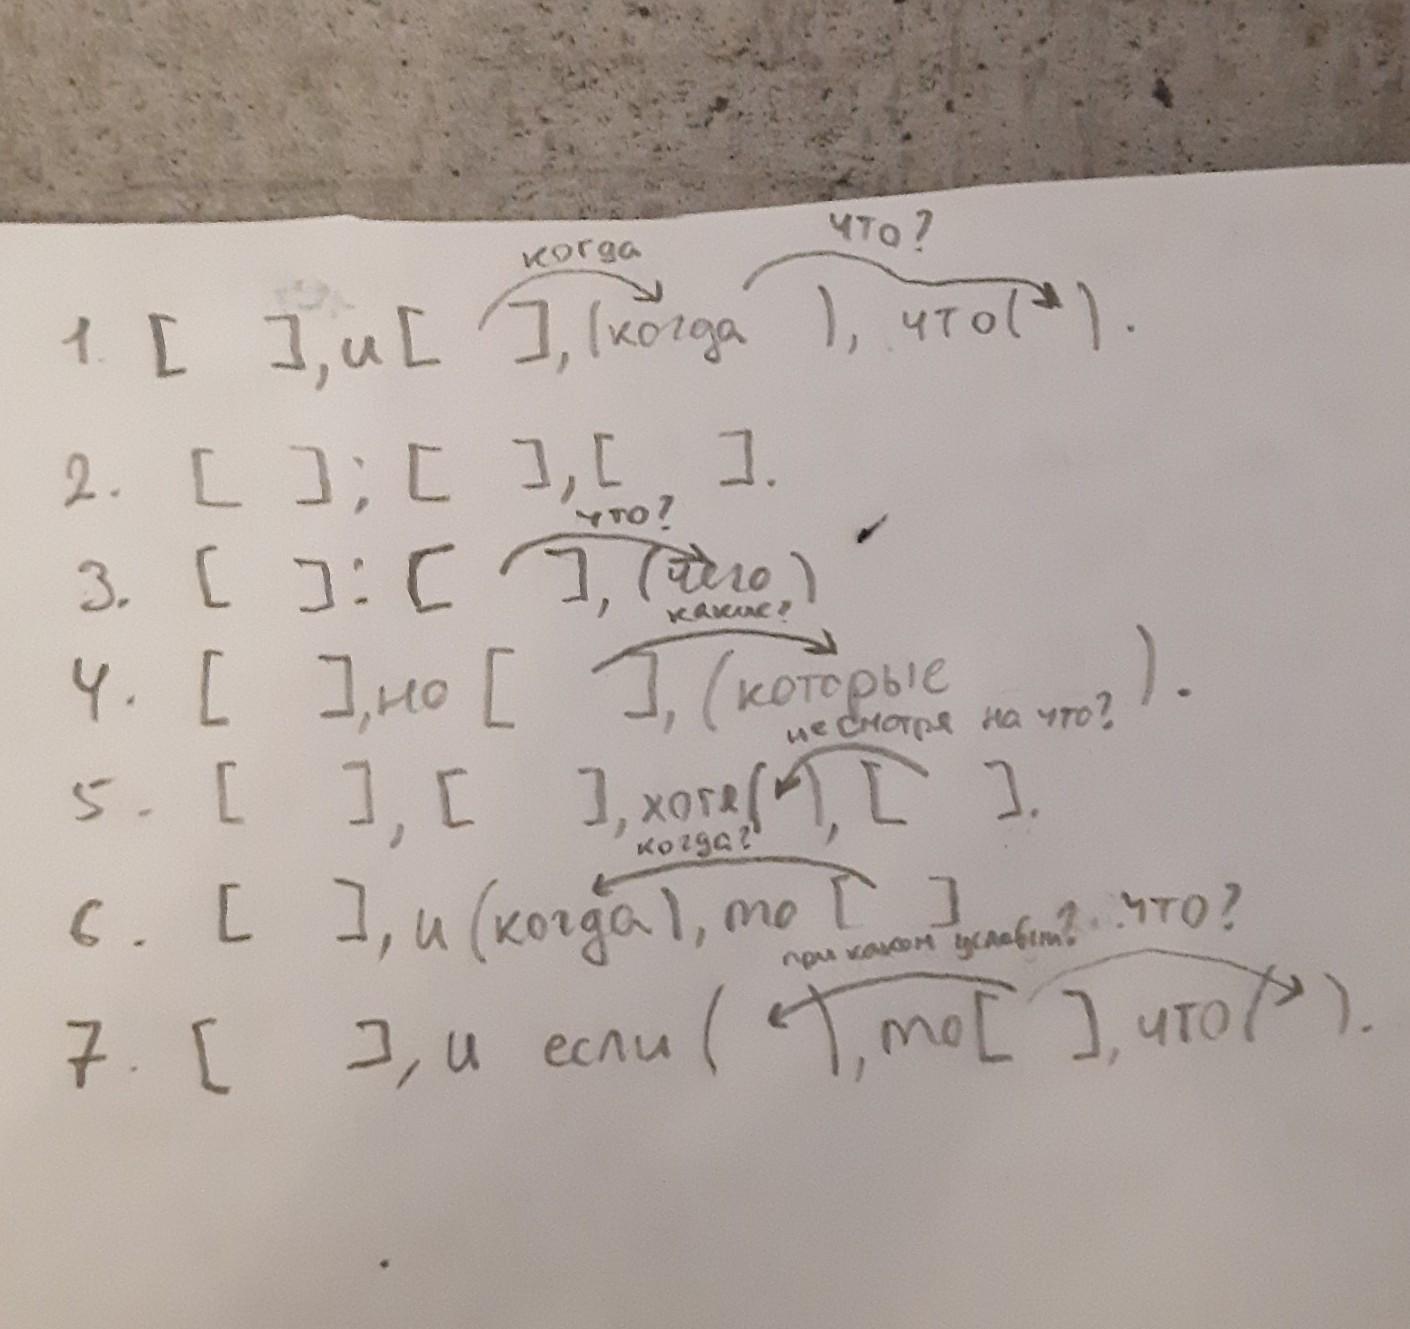 когда что?
1. [ ], и [ ], (когда ), что ( ).
2. [ ]; [ ], [ ].
что?
3. [ ]: [ ], (чего)
какие?
4. [ ], но [ ], (которые ).
несмотря на что?
5. [ ], [ ], хотя ( ), [ ].
когда?
6. [ ], и (когда), то [ ]
при каком условии? что?
7. [ ], и если ( ), то [ ], что ( ).